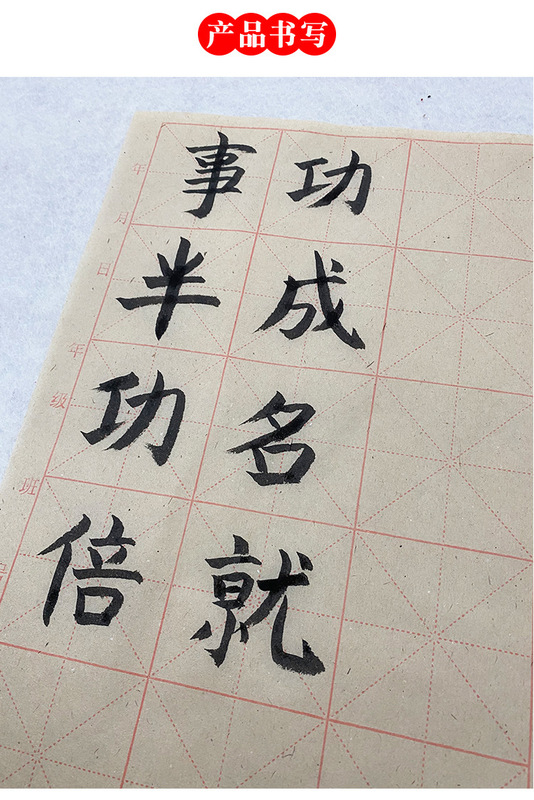 产品书写
功成名就
事半功倍
年
月
日
年
级
班